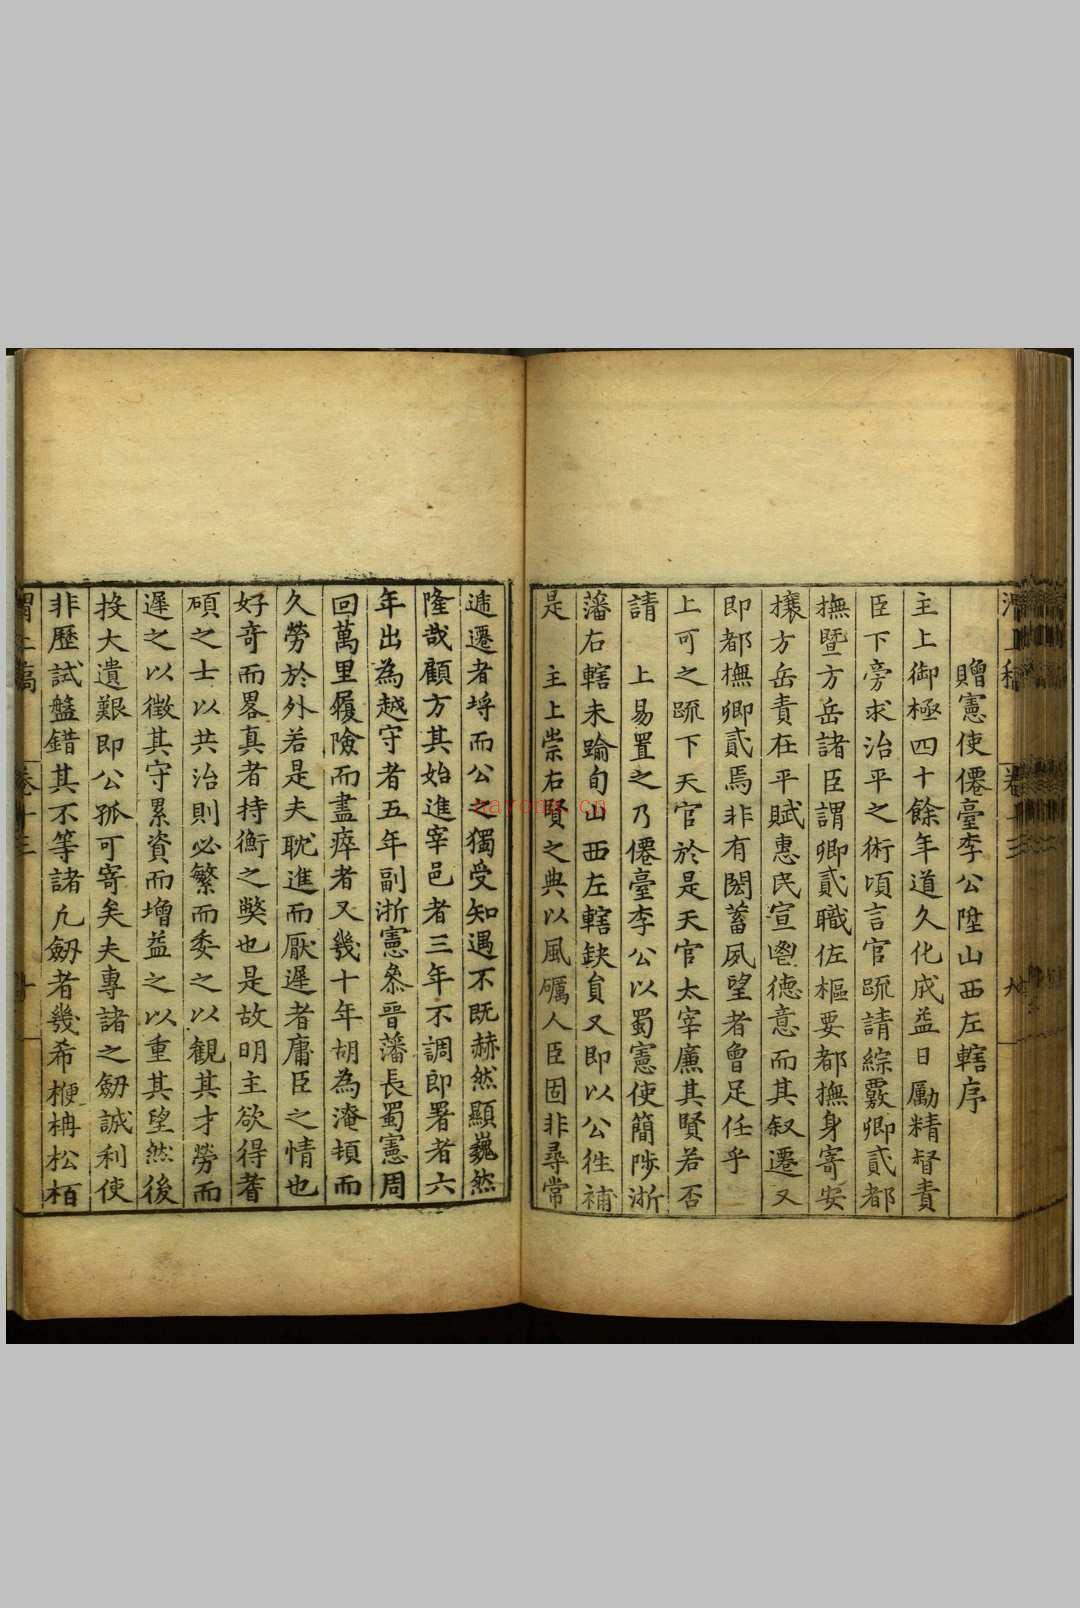 贈憲使僊臺李公陞山西左轄序
主上御極四十餘年道久化成益日勵精督責
臣下旁求治平之術頃言官疏請綜覈卿貳都
撫暨方岳諸臣謂卿貳職佐樞要都撫身寄安
攘方岳責在平賦惠民宣鬯德意而其叙遷又
即都撫卿貳焉非有閎蓄夙望者曾足任乎
上可之疏下天官於是天官太宰廉其賢若否
請　上易置之乃僊臺李公以蜀憲使簡陟浙
藩右轄未踰旬山西左轄缺員又即以公徃補
是　主上崇右賢之典以風礪人臣固非尋常
遞遷者埒而公之獨受知遇不既赫然顯巍然
隆哉顧方其始進宰邑者三年不調即署者六
年出為越守者五年副浙憲叅晉藩長蜀憲周
回萬里履險而盡瘁者又幾十年胡為淹頓而
久勞於外若是夫耽進而厭遲者庸臣之情也
好竒而畧真者持衡之獘也是故明主欲得耆
碩之士以共治則必繁而委之以観其才勞而
遲之以徵其守累資而增益之以重其望然後
投大遺艱即公孤可寄矣夫專諸之劒誠利使
非歷試盤錯其不等諸凡劒者幾希楩柟松栢
渭上稿
卷十三